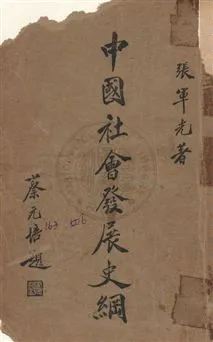 張軍光著
中國社會發展史綱
蔡元培題